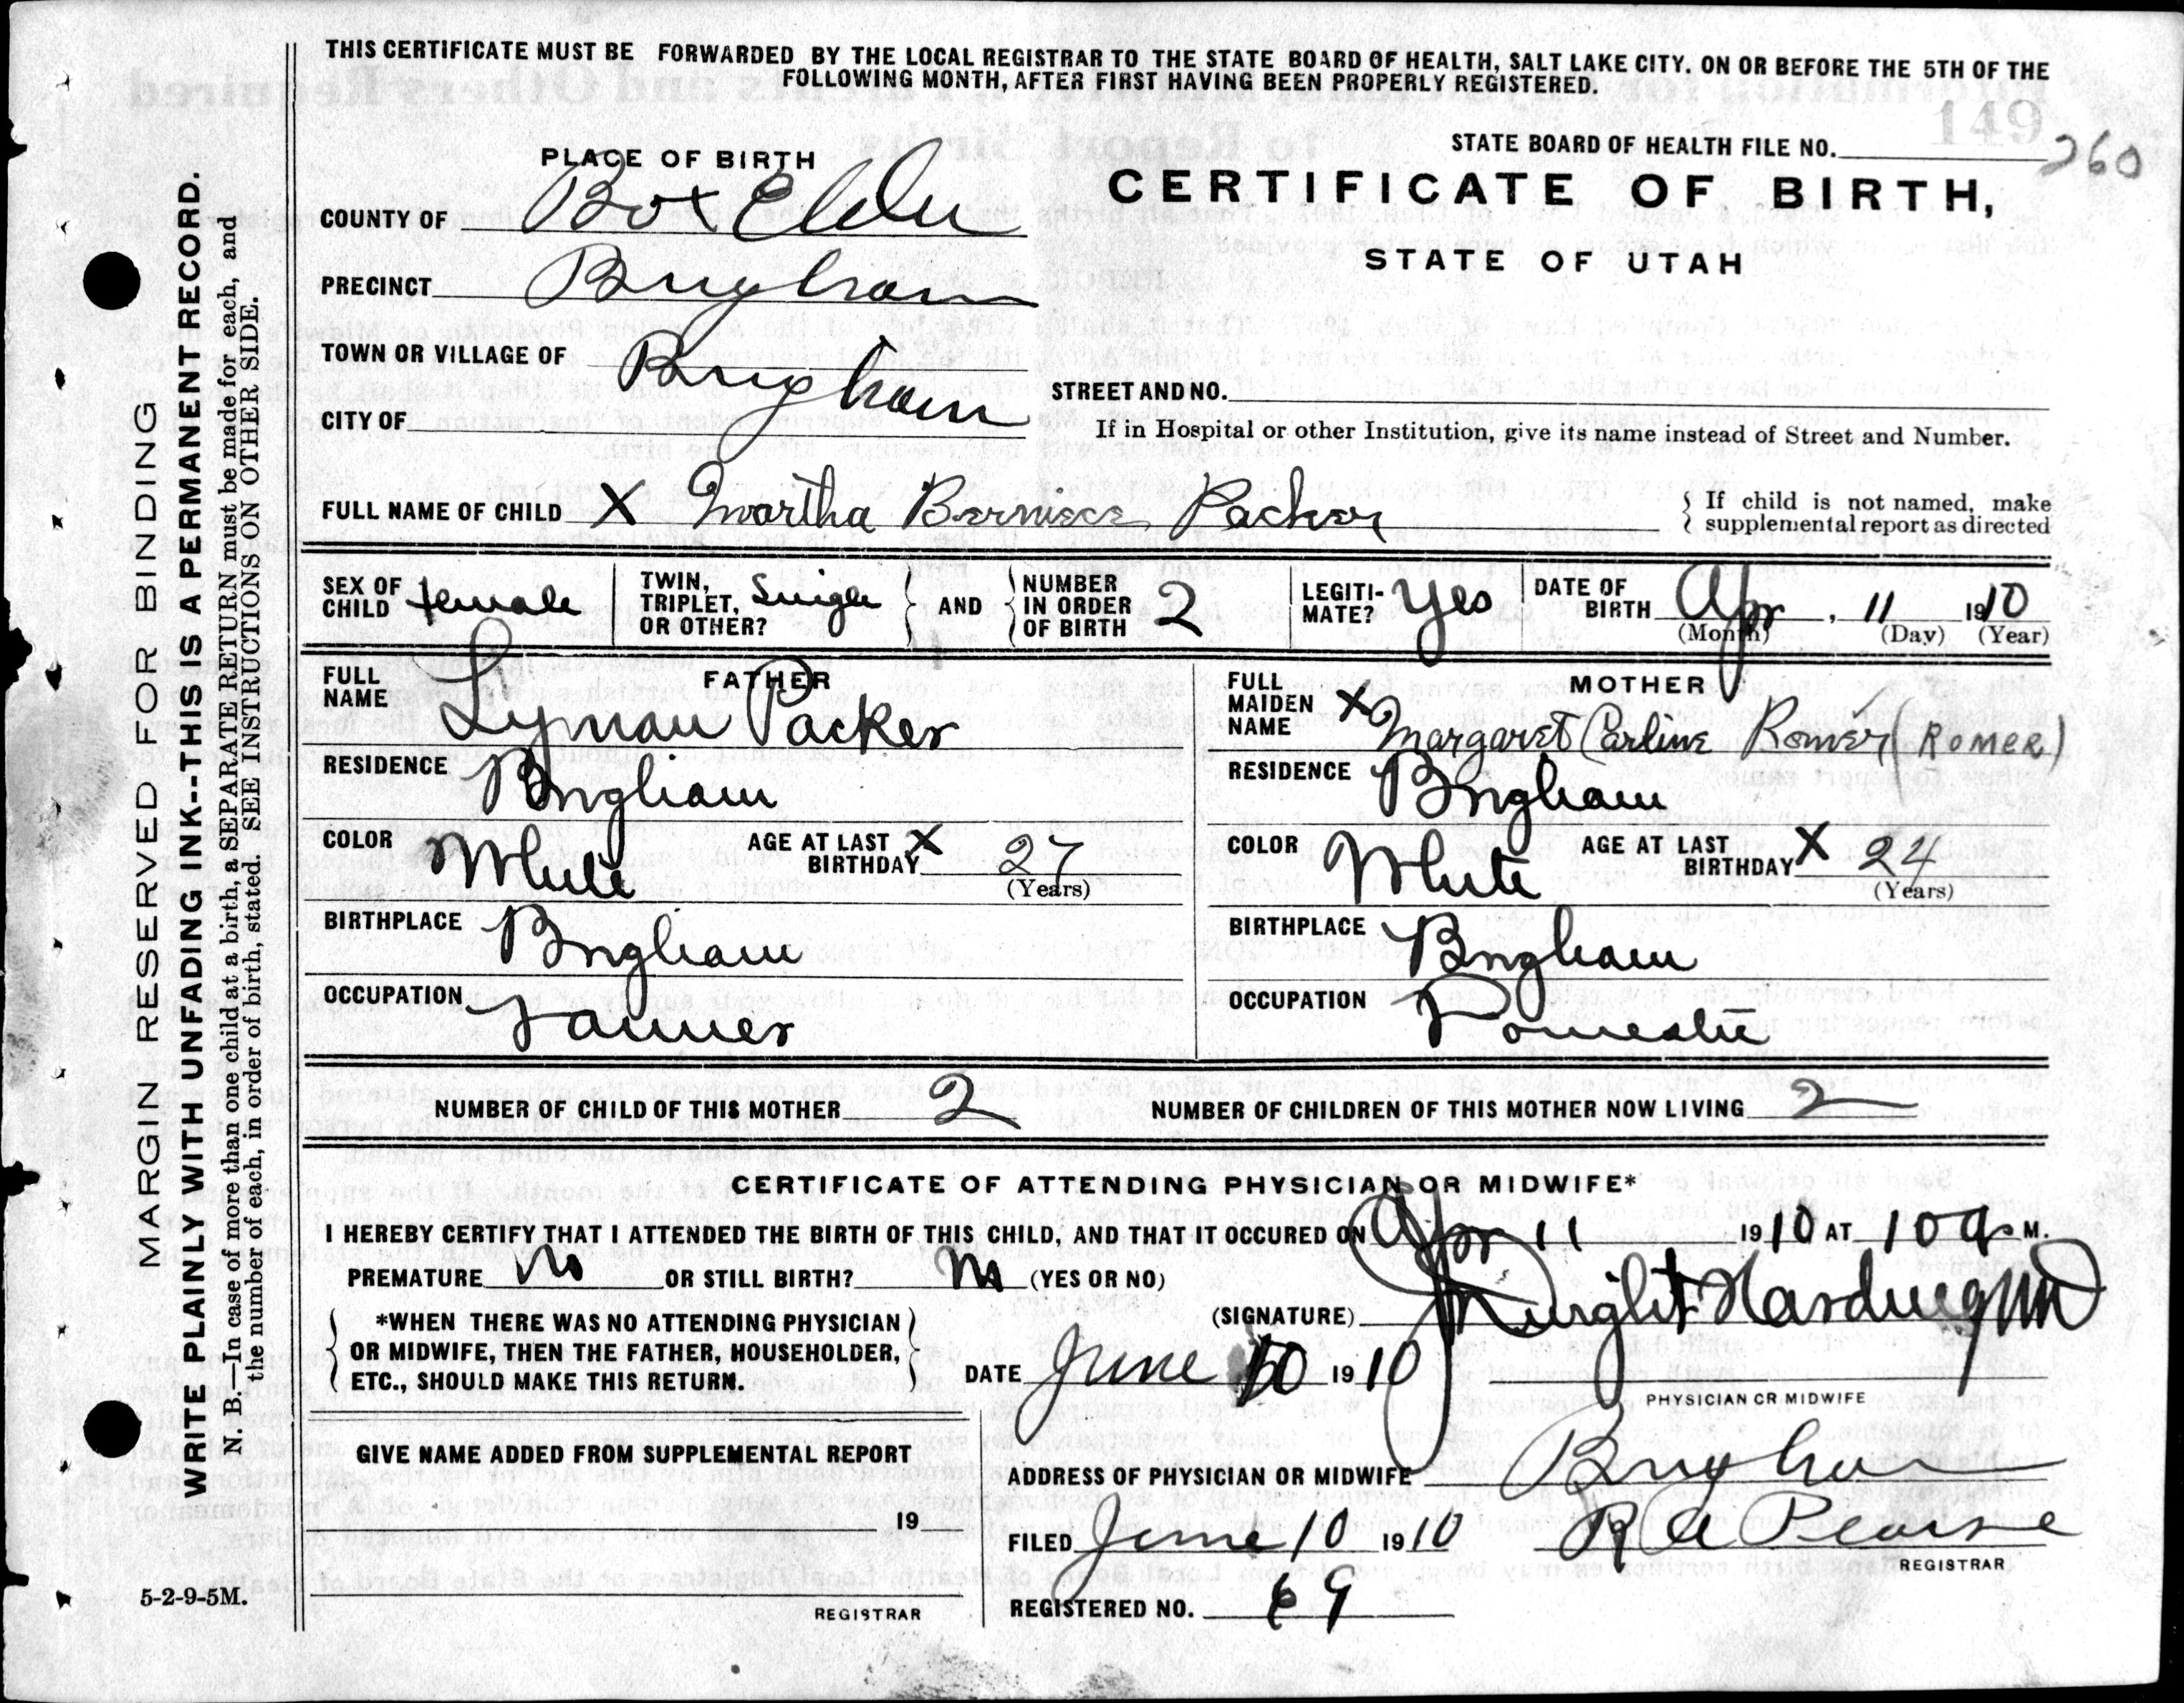 THIS CERTIFICATE MUST BE FORWARDED BY THE LOCAL REGISTRAR TO THE STATE BOARD OF HEALTH, SALT LAKE CITY. ON OR BEFORE THE 5TH OF THE
FOLLOWING MONTH, AFTER FIRST HAVING BEEN PROPERLY REGISTERED.
149
PLACE OF BIRTH
STATE BOARD OF HEALTH FILE NO. 260
COUNTY OF Box Elder
CERTIFICATE OF BIRTH,
STATE OF UTAH
PRECINCT Brigham
TOWN OR VILLAGE OF Brigham
STREET AND NO.
CITY OF
If in Hospital or other Institution, give its name instead of Street and Number.
FULL NAME OF CHILD X Martha Berniece Packer
If child is not named, make
supplemental report as directed
SEX OF CHILD female
TWIN, TRIPLET, OR OTHER? Single
AND
NUMBER IN ORDER OF BIRTH 2
LEGITI-MATE? Yes
DATE OF BIRTH Apr, 11 1910
(Month) (Day) (Year)
FATHER
FULL NAME Lyman Packer
MOTHER
FULL MAIDEN NAME X Margaret Carline Romer (ROMER)
RESIDENCE Brigham
RESIDENCE Brigham
COLOR White AGE AT LAST BIRTHDAY X 27 (Years)
COLOR White AGE AT LAST BIRTHDAY X 24 (Years)
BIRTHPLACE Brigham
BIRTHPLACE Brigham
OCCUPATION Farmer
OCCUPATION Domestic
NUMBER OF CHILD OF THIS MOTHER 2 NUMBER OF CHILDREN OF THIS MOTHER NOW LIVING 2
CERTIFICATE OF ATTENDING PHYSICIAN OR MIDWIFE*
I HEREBY CERTIFY THAT I ATTENDED THE BIRTH OF THIS CHILD, AND THAT IT OCCURED ON Apr 11 1910 AT 10 a M.
PREMATURE No OR STILL BIRTH? No (YES OR NO)
(SIGNATURE) Dwight Harding MD
*WHEN THERE WAS NO ATTENDING PHYSICIAN
OR MIDWIFE, THEN THE FATHER, HOUSEHOLDER,
ETC., SHOULD MAKE THIS RETURN.
DATE June 10 1910
PHYSICIAN OR MIDWIFE
GIVE NAME ADDED FROM SUPPLEMENTAL REPORT
ADDRESS OF PHYSICIAN OR MIDWIFE Brigham
19
FILED June 10 1910 R A Pearse
REGISTRAR
REGISTRAR
REGISTERED NO. 69
5-2-9-5M.
MARGIN RESERVED FOR BINDING
WRITE PLAINLY WITH UNFADING INK--THIS IS A PERMANENT RECORD.
N. B.—In case of more than one child at a birth, a SEPARATE RETURN must be made for each, and
the number of each, in order of birth, stated. SEE INSTRUCTIONS ON OTHER SIDE.